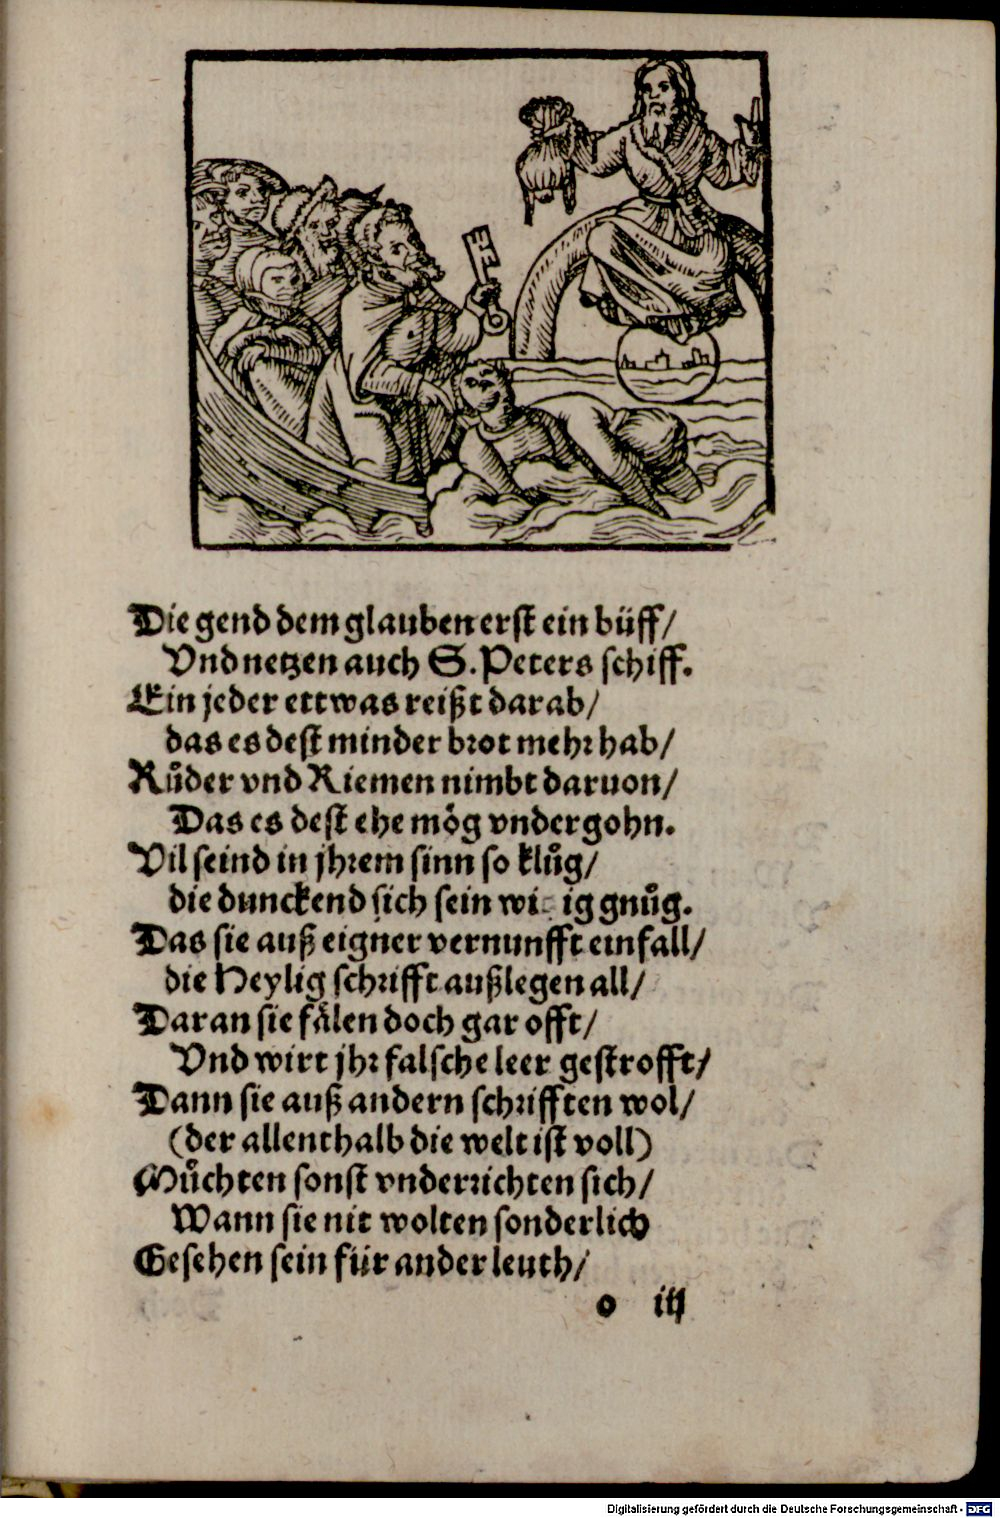 Die gend dem glauben erst ein büff/
Vnd netzen auch S. Peters schiff.
Ein jeder ettwas reißt darab/
das es dest minder brot mehr hab/
Růder vnd Riemen nimbt daruon/
Das es dest ehe mög vndergohn.
Vil seind in jhrem sinn so klůg/
die dunckend sich sein gnůg.
Das sie auß eigner vernunfft einfall/
die Heylig schrifft außlegen all/
Daran sie fälen doch gar offt/
Vnd wirt jhr falsche leer gestrofft/
Dann sie auß andern schrifften wol/
(der allenthalb die welt ist voll)
Můchten sonst vnderrichten sich/
Wann sie nit wolten sonderlich
Gesehen sein für ander leuth/
o iij
Digitalisierung gefördert durch die Deutsche Forschungsgemeinschaft - DFG